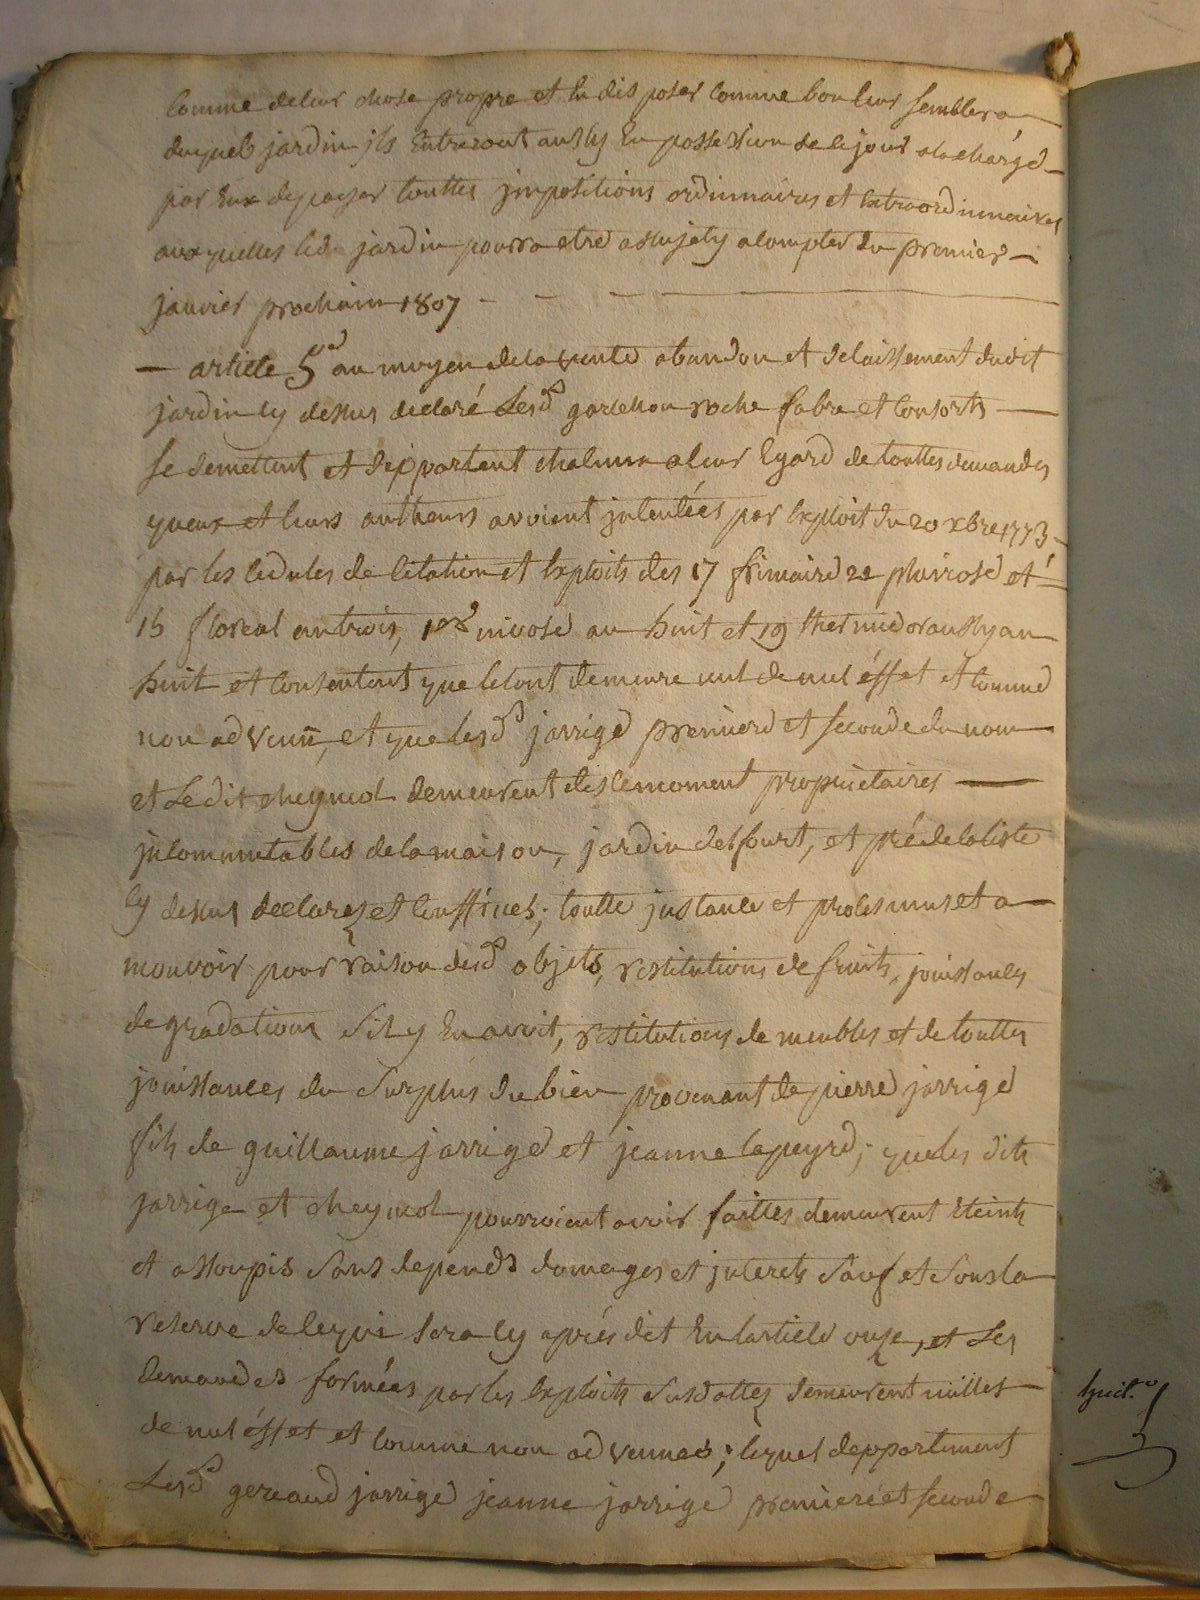 comme de leur chose propre et en disposer comme bon leur semblera
duquels jardin ils entreront aussy en possession de ce jour a la charge
par eux de payer touttes impositions ordinnaires et extraordinnaires
auxquelles led. jardin pourra etre assujety a compter du premier
janvier prochain 1807
— article 5e au moyen de la vente abandon et delaissement dudit
jardin cy dessus declaré Lesd. gardelion roche fabre et consorts
se demettent et depportent chalunn a leur egard de touttes demandes
queux et leurs autheurs avoient intentées par exploit du 20 xbre 1773
par les cedules de citation et exploits des 17 frimaire 22 pluviose et
15 floreal an trois, 1er nivose an huit et 19 thermidor aussy an
huit et consentent que le tout demeure nul de nul éffet et comme
non advenu, et que lesd. jarrige premiere et seconde du nom
et Ledit cheymol demeurent des le moment proprietaires
incommutables de la maison, jardin del fourt, et pré de la liste
cy dessus declarez et confinés; toutte instance et proces mus et a
mouvoir pour raison desd. objets, restitutions de fruits, jouissances
degradations Sil y en avoit, restitutions de meubles et de touttes
jouissances du Surplus du bien provenant de pierre jarrige
fils de guillaume jarrige et jeanne lapeyre; que les dits
jarrige et cheymol pourroient avoir faittes demeurent Eteints
et assoupis Sans depends domages et interets Sauf et Sous la
reserve de ce qui Sera cy après dit en larticle onze, et Les
demandes formées par les exploits Susdattez demeurent nulles
de nul éffet et comme non advenues; lequel depportement
Lesd. geraud jarrige jeanne jarrige premiere et seconde